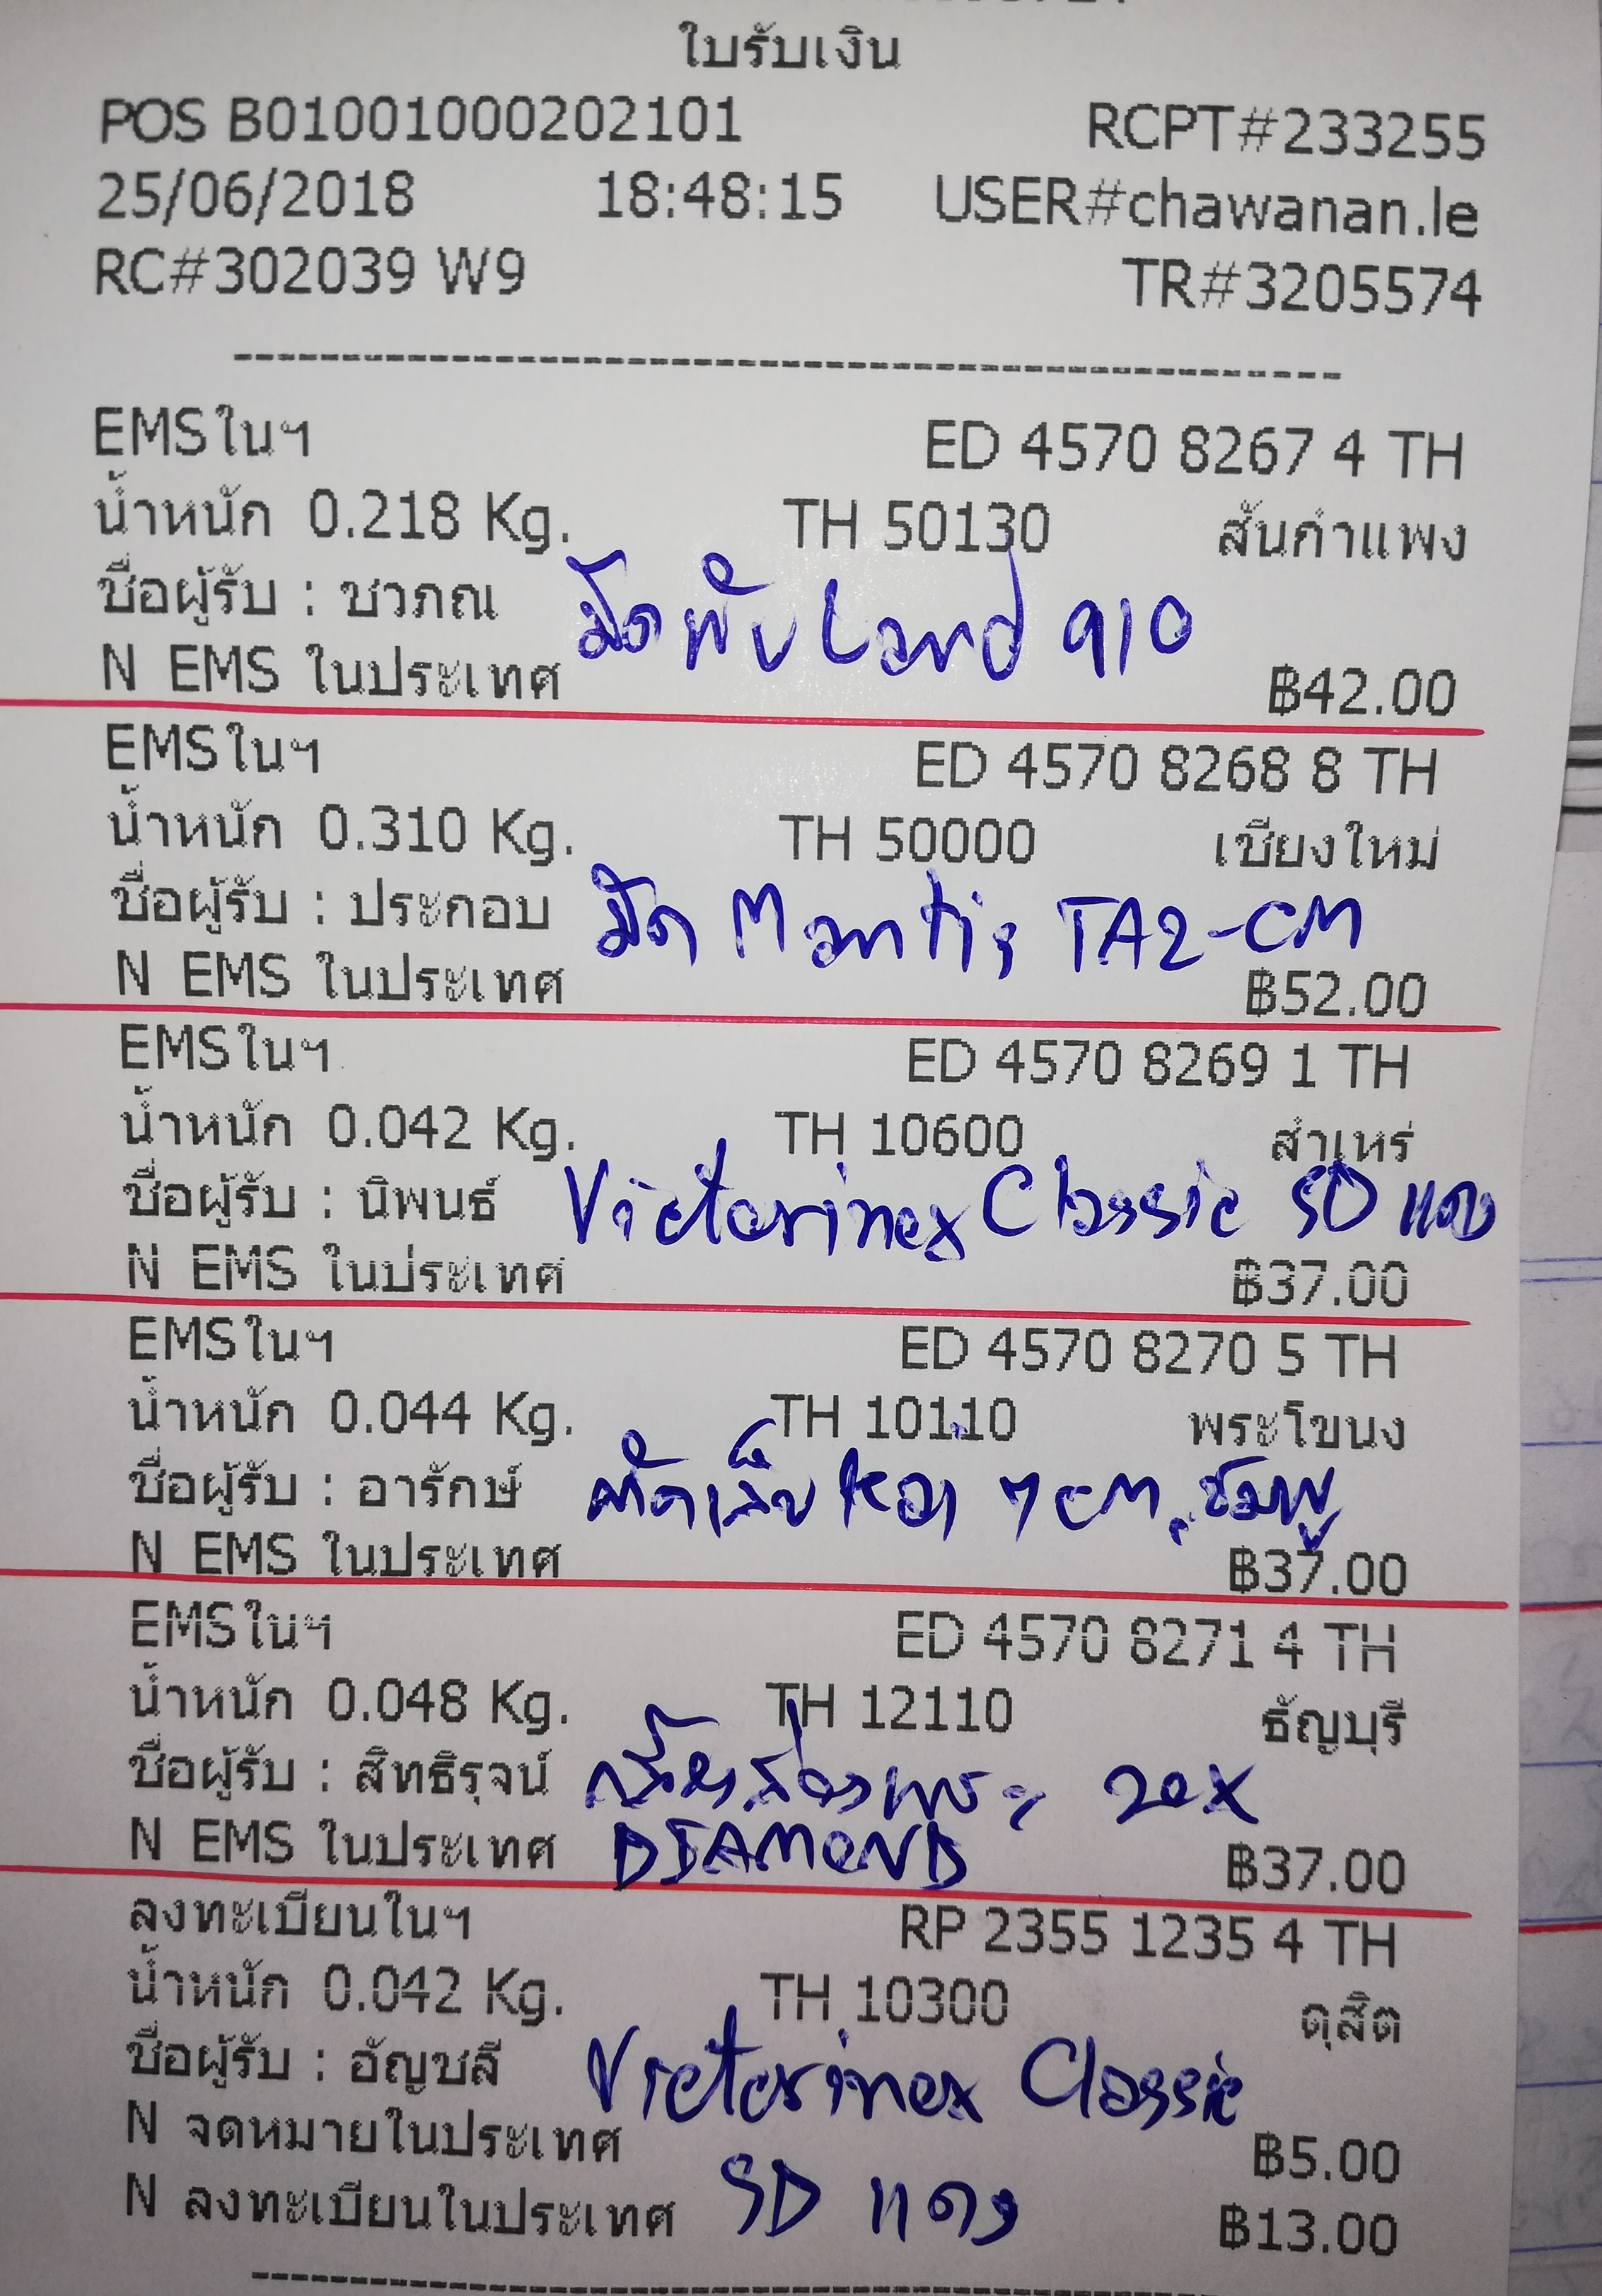 ใบรับเงิน
POS B01001000202101 RCPT#233255
25/06/2018 18:48:15 USER#chawanan.le
RC#302039 W9 TR#3205574
--------------------------------------------------
EMSในฯ ED 4570 8267 4 TH
น้ำหนัก 0.218 Kg. TH 50130 สันกำแพง
ชื่อผู้รับ : ชวภณ มีดพับ Land 910
N EMS ในประเทศ ฿42.00
EMSในฯ ED 4570 8268 8 TH
น้ำหนัก 0.310 Kg. TH 50000 เชียงใหม่
ชื่อผู้รับ : ประกอบ มีด Mantis TA2-CM
N EMS ในประเทศ ฿52.00
EMSในฯ ED 4570 8269 1 TH
น้ำหนัก 0.042 Kg. TH 10600 สำเหร่
ชื่อผู้รับ : นิพนธ์ Victorinox Classic SD แดง
N EMS ในประเทศ ฿37.00
EMSในฯ ED 4570 8270 5 TH
น้ำหนัก 0.044 Kg. TH 10110 พระโขนง
ชื่อผู้รับ : อารักษ์ ตัดเล็บ Kai 7 CM. ชมพู
N EMS ในประเทศ ฿37.00
EMSในฯ ED 4570 8271 4 TH
น้ำหนัก 0.048 Kg. TH 12110 ธัญบุรี
ชื่อผู้รับ : สิทธิรุจน์ กล้องส่องพระ 20X
N EMS ในประเทศ DIAMOND ฿37.00
ลงทะเบียนในฯ RP 2355 1235 4 TH
น้ำหนัก 0.042 Kg. TH 10300 ดุสิต
ชื่อผู้รับ : อัญชลี Victorinox Classic
N จดหมายในประเทศ ฿5.00
SD แดง
N ลงทะเบียนในประเทศ ฿13.00
--------------------------------------------------